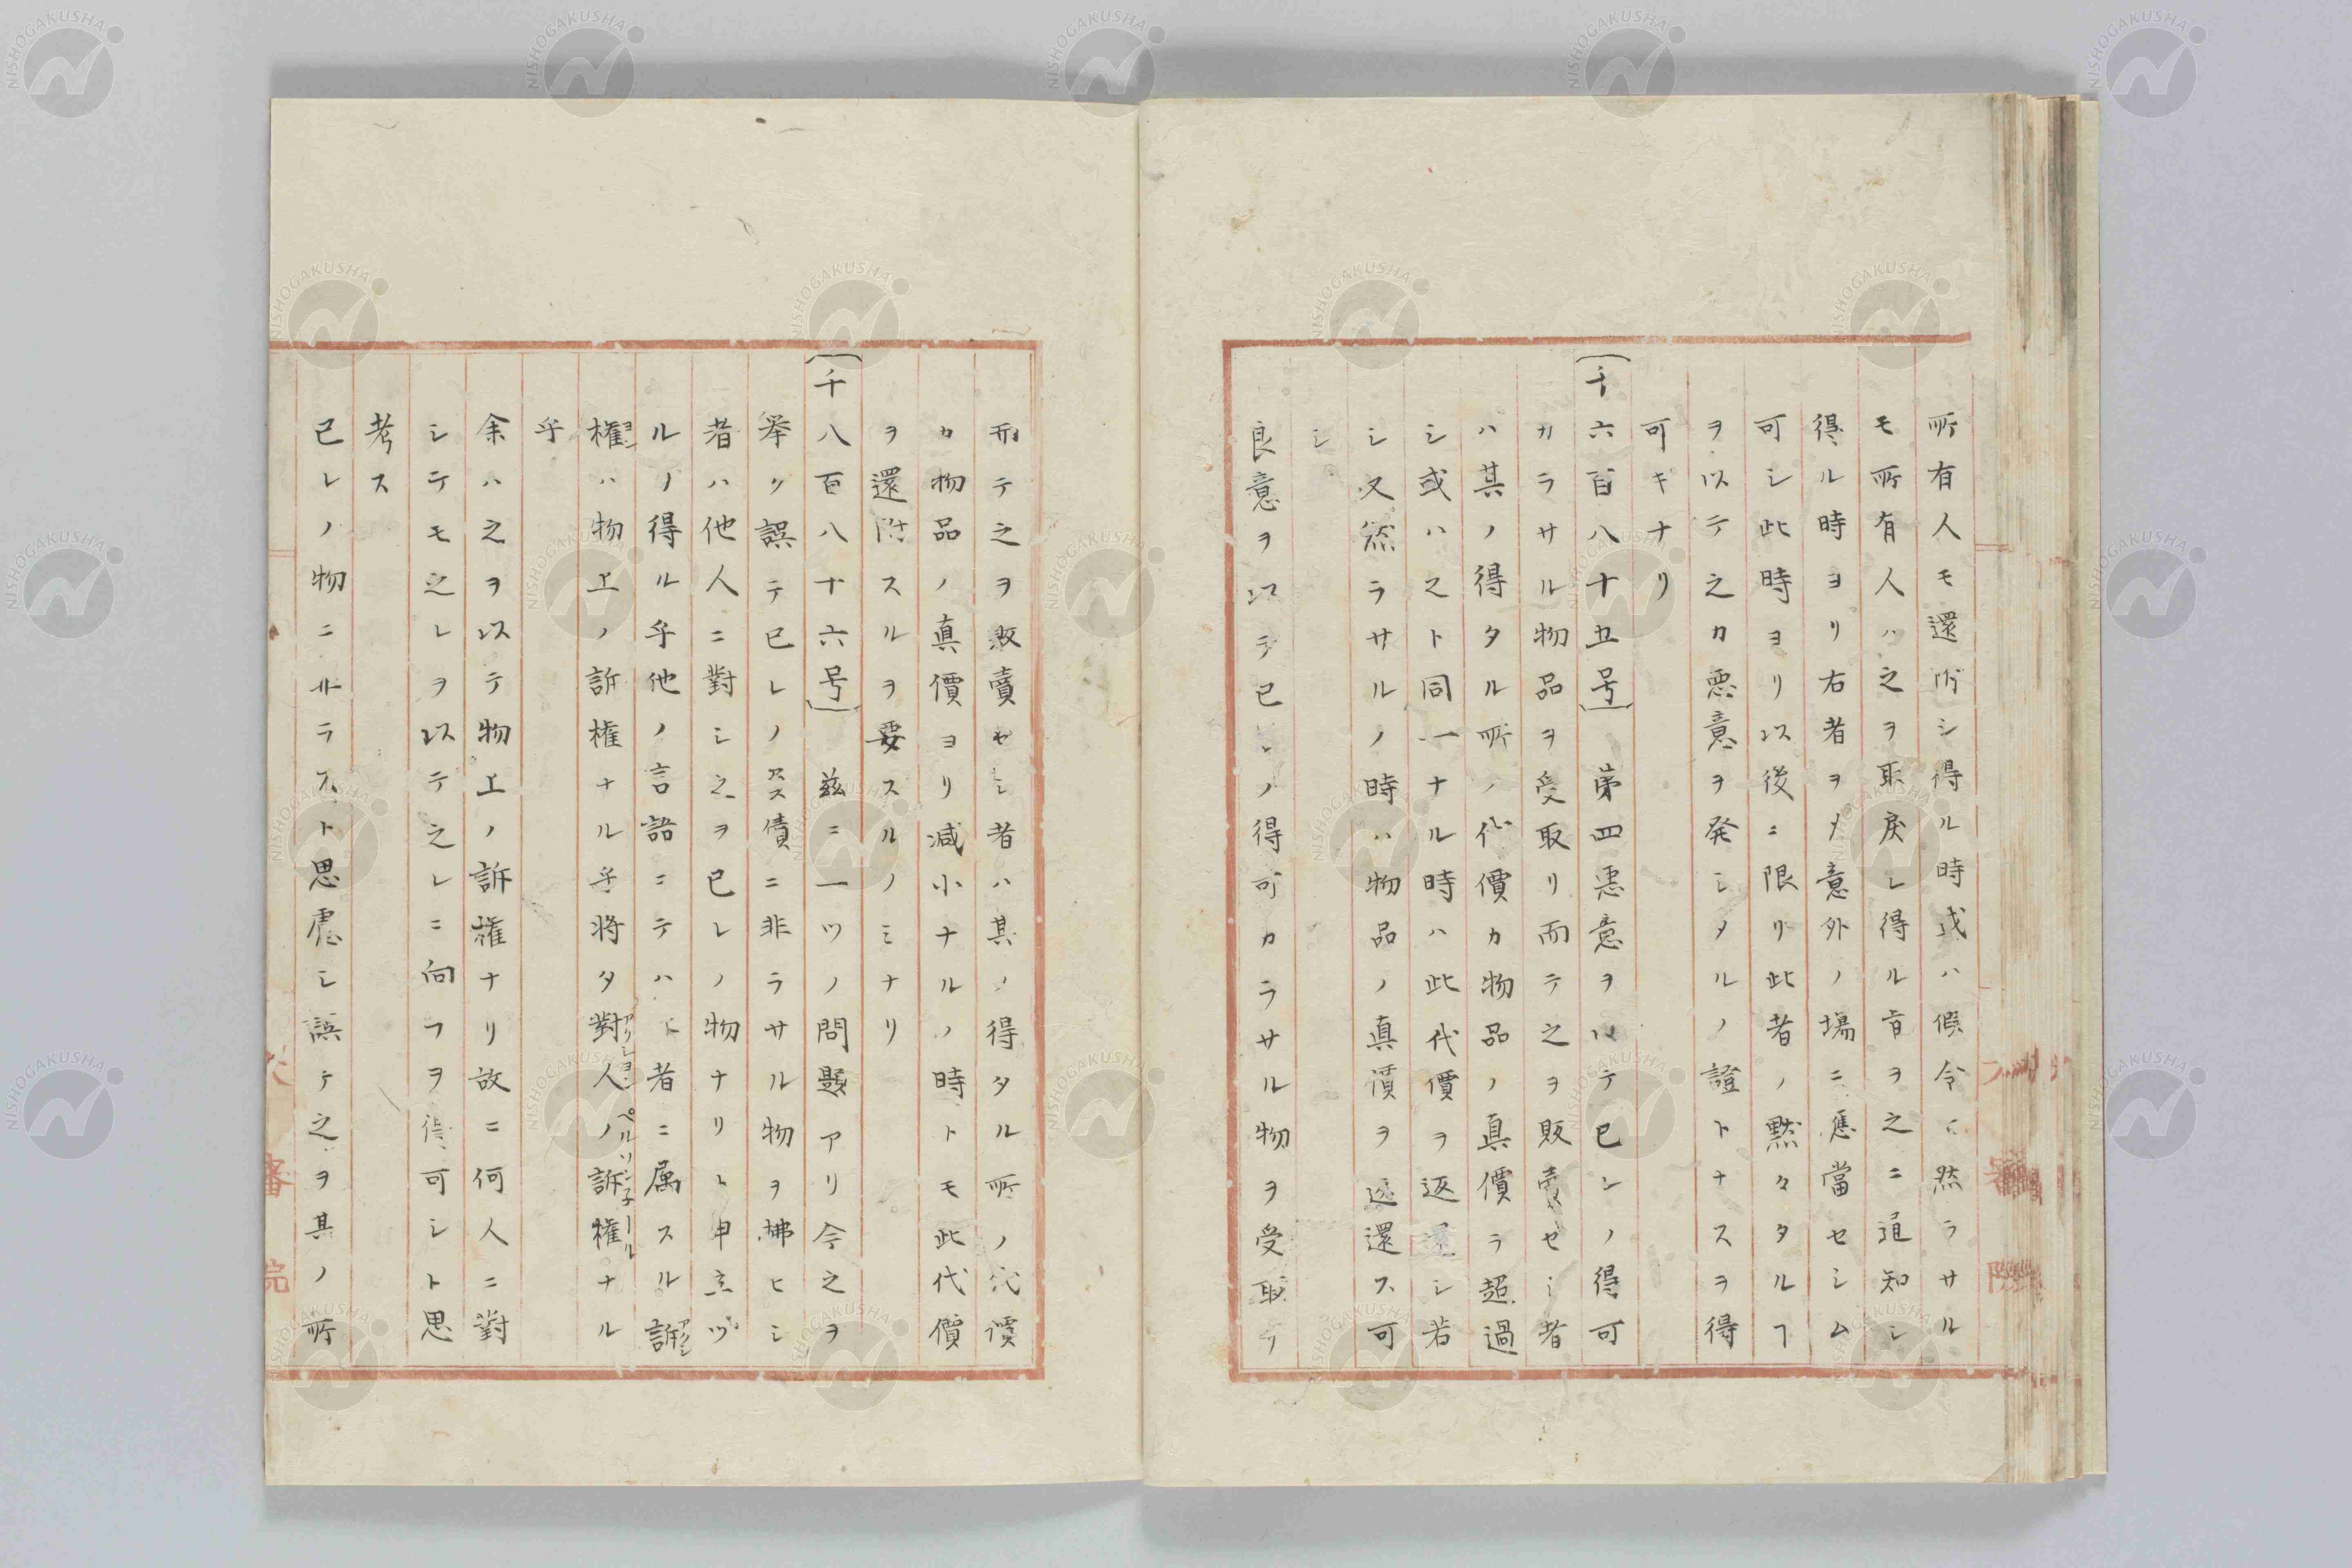 所有人モ還附シ得ル時或ハ假令ヒ然ラサル
モ所有人ハ之ヲ取戻シ得ル旨ヲ之ニ通知シ
得ル時ヨリ右者ヲメ意外ノ塲ニ應當セシム
可シ此時ヨリ以後ニ限リ此者ノ黙々タルヿ
ヲ以テ之カ悪意ヲ発シメルノ證トナスヲ得
可キナリ
(千六百八十五号) 第四悪意ヲ以テ已レノ得可
カラサル物品ヲ受取リ而テ之ヲ販賣セシ者
ハ其ノ得タル所ノ代價カ物品ノ真價ヲ超過
シ或ハ之ト同一ナル時ハ此代價ヲ返還シ若
シ又然ラサルノ時ハ物品ノ真價ヲ返還ス可
シ
良意ヲ以テ已レノ得可カラサル物ヲ受取リ
而テ之ヲ販賣セシ者ハ其ノ得タル所ノ代價
カ物品ノ真價ヨリ減小ナルノ時トモ此代價
ヲ還附スルヲ要スルノミナリ
(千八百八十六号) 茲ニ一ツノ問題アリ今之ヲ
挙ク誤テ已レノ債ニ非ラサル物ヲ拂ヒシ
者ハ他人ニ對シ之ヲ已レノ物ナリト申立ツ
ルノ得ル乎他ノ言語ニテハ下者ニ属スル訴
権ハ物上ノ訴権ナル乎将タ對人ノ訴権ナル
アクション ペルソ子ール
乎
余ハ之ヲ以テ物上ノ訴権ナリ故ニ何人ニ對
シテモ之レヲ以テ之レニ向フヲ得可シト思
考ス
已レノ物ニ非ラスト思慮シ誤テ之ヲ其ノ所
審
院